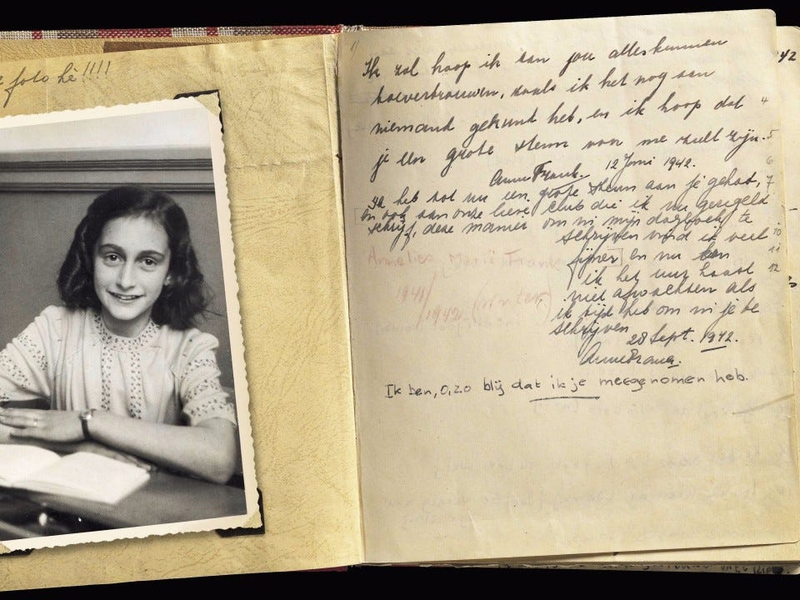 foto hè!!!!
Ik zal hoop ik aan jou alles kunnen
toevertrouwen, zoals ik het nog aan
niemand gekund heb, en ik hoop dat 4
je een grote steun voor me zult zijn. 5
Anne Frank. 12 Juni 1942. 6
Ik heb tot nu een grote steun aan je gehad, 7
en ook aan onze lieve club die ik nu geregeld
schrijf, deze manier om in mijn dagboek te
schrijven vind ik veel 10
fijner en nu kan 11
ik het uur haast 12
niet afwachten als
ik tijd heb om in je te
schrijven
28 Sept. 1942.
Anne Frank.
Annelies Marie Frank
1941/
1942. (winter)
Ik ben, o, zo blij dat ik je meegenomen heb.
42